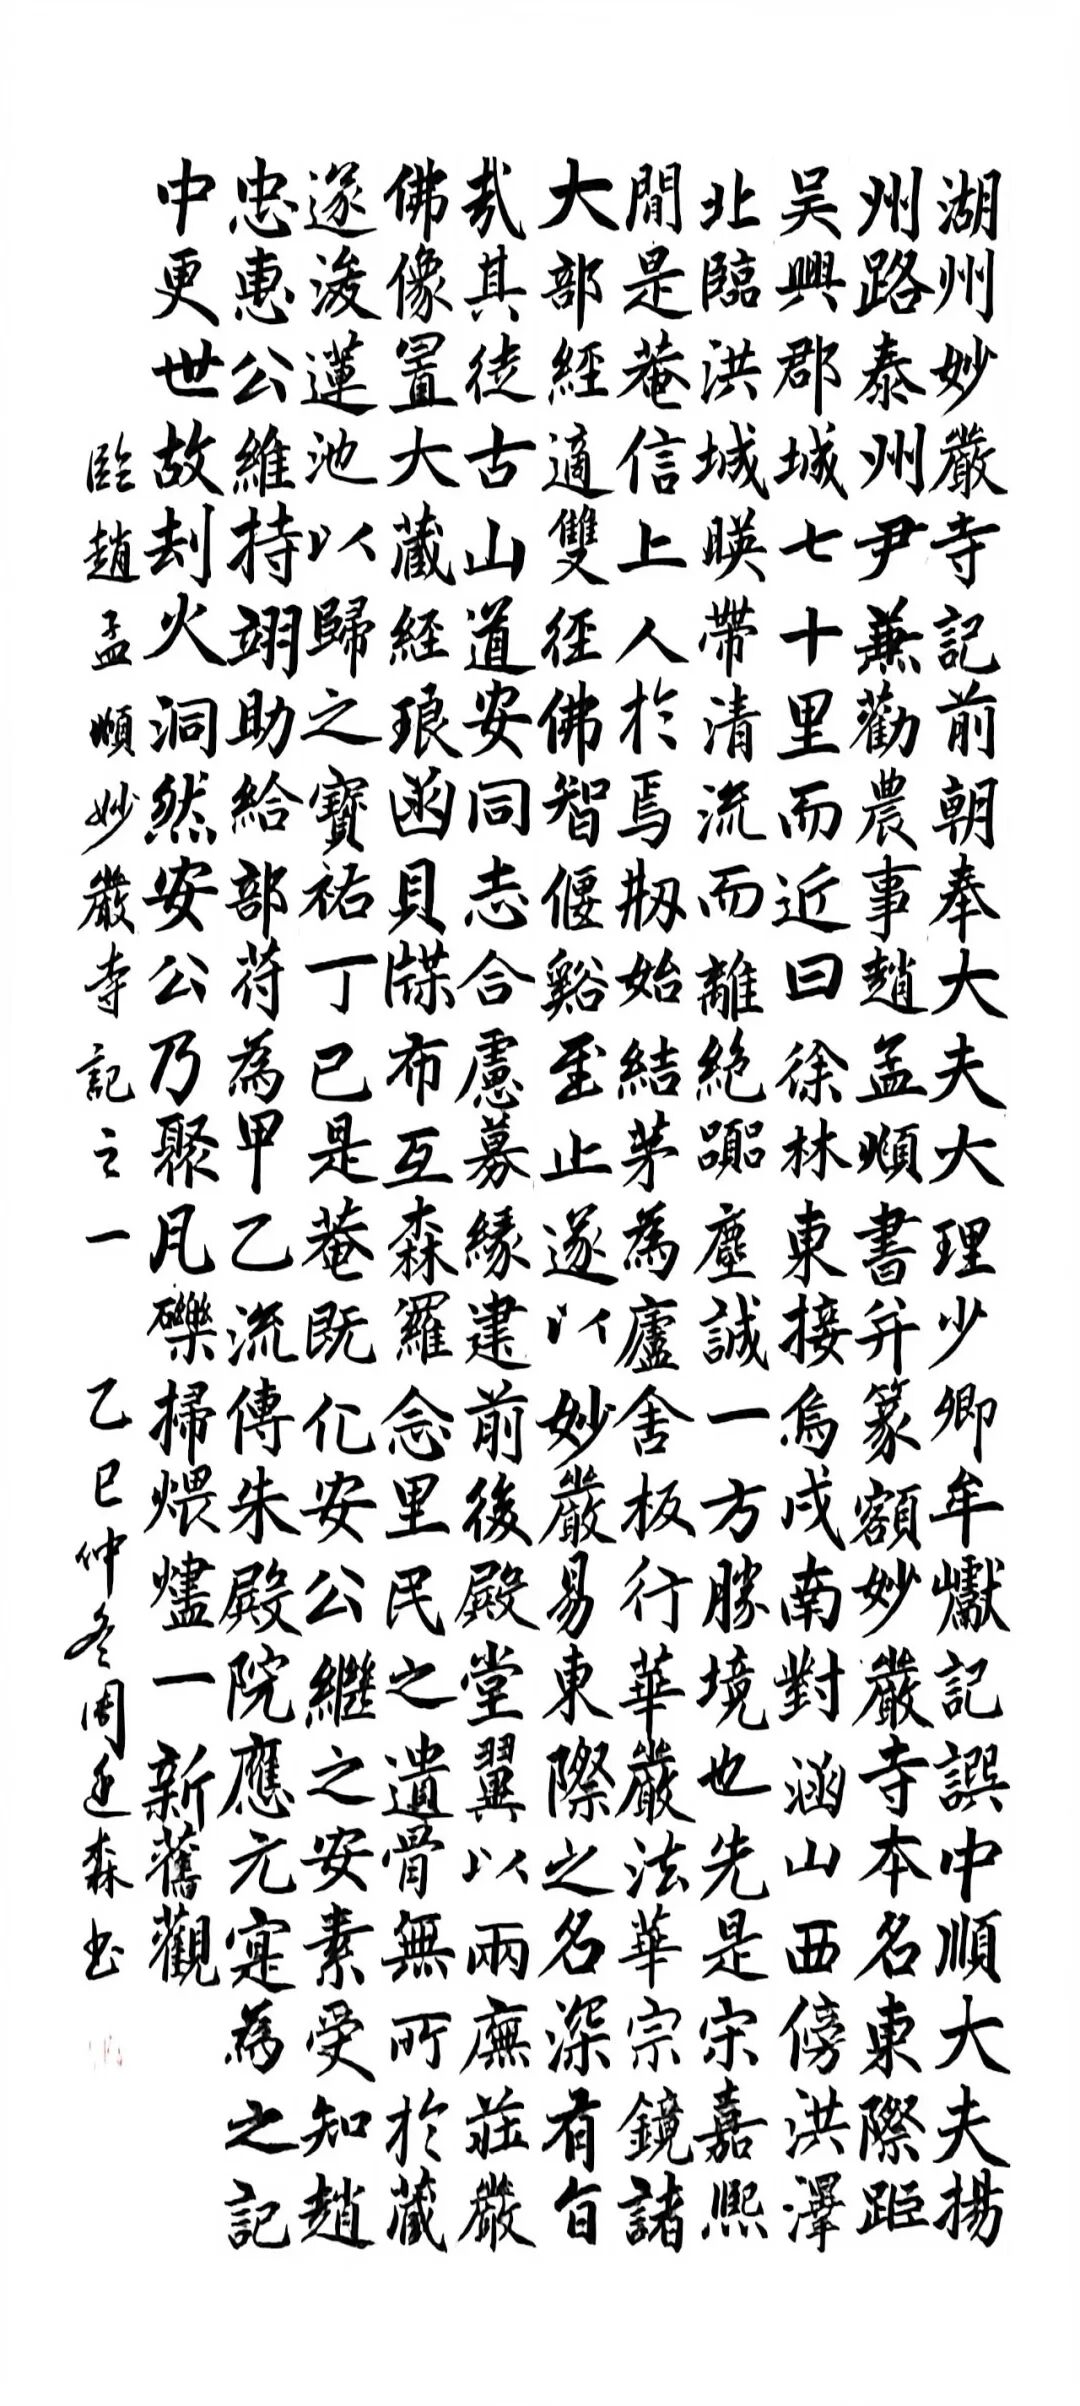 湖州妙嚴寺記前朝奉大夫大理少卿牟巘記譔中順大夫揚
州路泰州尹兼勸農事趙孟頫書并篆額妙嚴寺本名東際距
吴興郡城七十里而近曰徐林東接烏戍南對涵山西傍洪澤
北臨洪城暎帶清流而離絶囂塵誠一方勝境也先是宋嘉熙
間是菴信上人於焉剏始結茅為廬舍板行華嚴法華宗鏡諸
大部經適雙徑佛智偃谿至止遂以妙嚴易東際之名深有旨
哉其徒古山道安同志合慮募緣建前後殿堂翼以兩廡莊嚴
佛像置大藏經琅函貝牒布互森羅念里民之遺骨無所於藏
遂浚蓮池以歸之寶祐丁巳是菴既化安公繼之安素受知趙
忠惠公維持翊助給部苻為甲乙流傳朱殿院應元寔為之記
中更世故刦火洞然安公乃聚凡礫掃煨燼一新舊觀
臨趙孟頫妙嚴寺記之一 乙巳仲冬周近森书